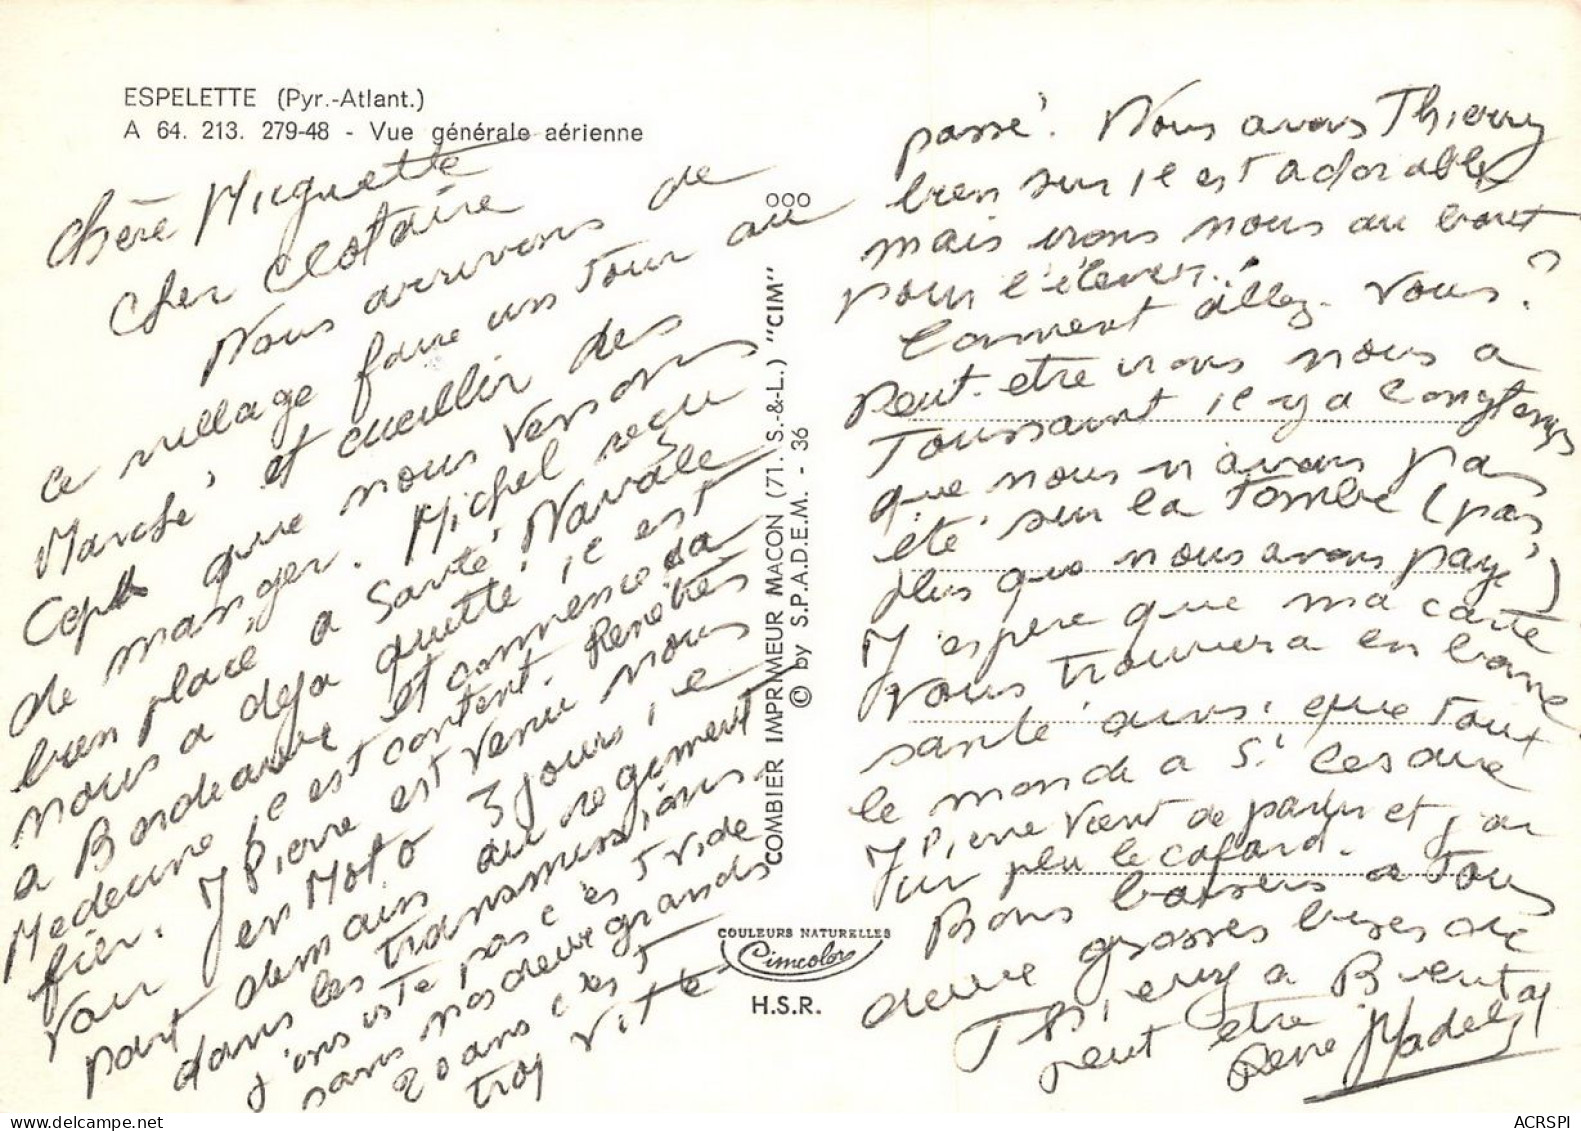 ESPELETTE (Pyr.-Atlant.)
A 64. 213. 279-48 - Vue générale aérienne
Chère Muguette
Cher Clotaire
Nous arrivons de
ce village faire un tour au
Marché et cueillir des
Ceps que nous venons
de manger. Michel reçu
bien placé a Santé Navale
nous a deja quitté il est
a Bordeaux et commence sa
Medecine il est content. René très
fier. J Pierre est venu nous
voir en Moto 3 jours, il
part demain au regiment
dans les transmissions.
J'insiste pas c'est vide
sans nos deux grands
20 ans c'est
trop vite
passé. Nous avons Thierry
bien sur il est adorable
mais irons nous au bout
pour l'élever..!
Comment allez-vous?
Peut-etre irons nous a
Toussaint il y a longtemps
que nous n'avons pas
été sur la Tombe (pas
plus que nous avons payé)
J'espere que ma carte
vous trouvera en bonne
santé ainsi que tout
le monde a St Cesaire
J Pierre vient de partir et j'ai
un peu le cafard.
Bons baisers a tous
deux grosses bises de
Thierry a Bientot
peut etre
René Madel
COMBIER IMPRIMEUR MACON (71. S.-&-L.) "CIM"
© by S.P.A.D.E.M. - 36
COULEURS NATURELLES
Cimcolor
H.S.R.
ACRSPI